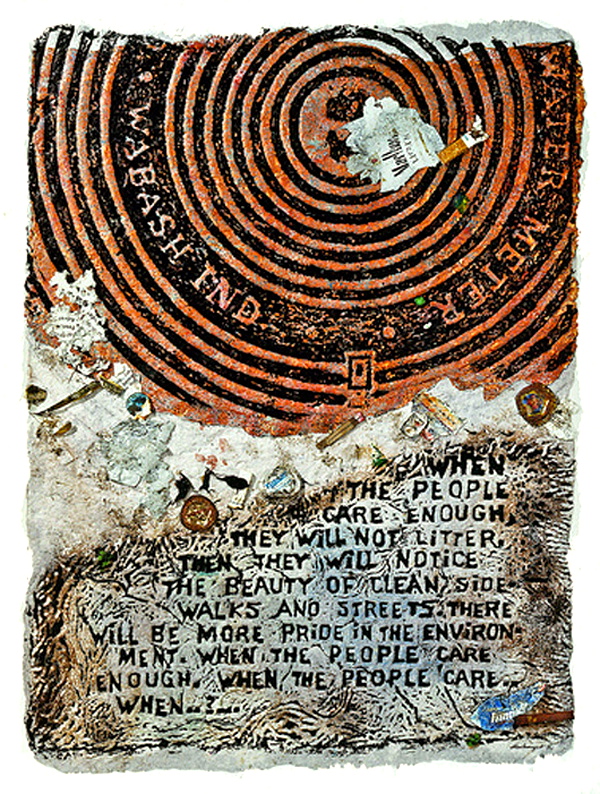 WABASH IND
WATER METER
WHEN
THE PEOPLE
CARE ENOUGH,
THEY WILL NOT LITTER.
THEN THEY WILL NOTICE
THE BEAUTY OF CLEAN SIDE-
WALKS AND STREETS. THERE
WILL BE MORE PRIDE IN THE ENVIRON-
MENT. WHEN THE PEOPLE CARE
ENOUGH, WHEN THE PEOPLE CARE..
WHEN...?...